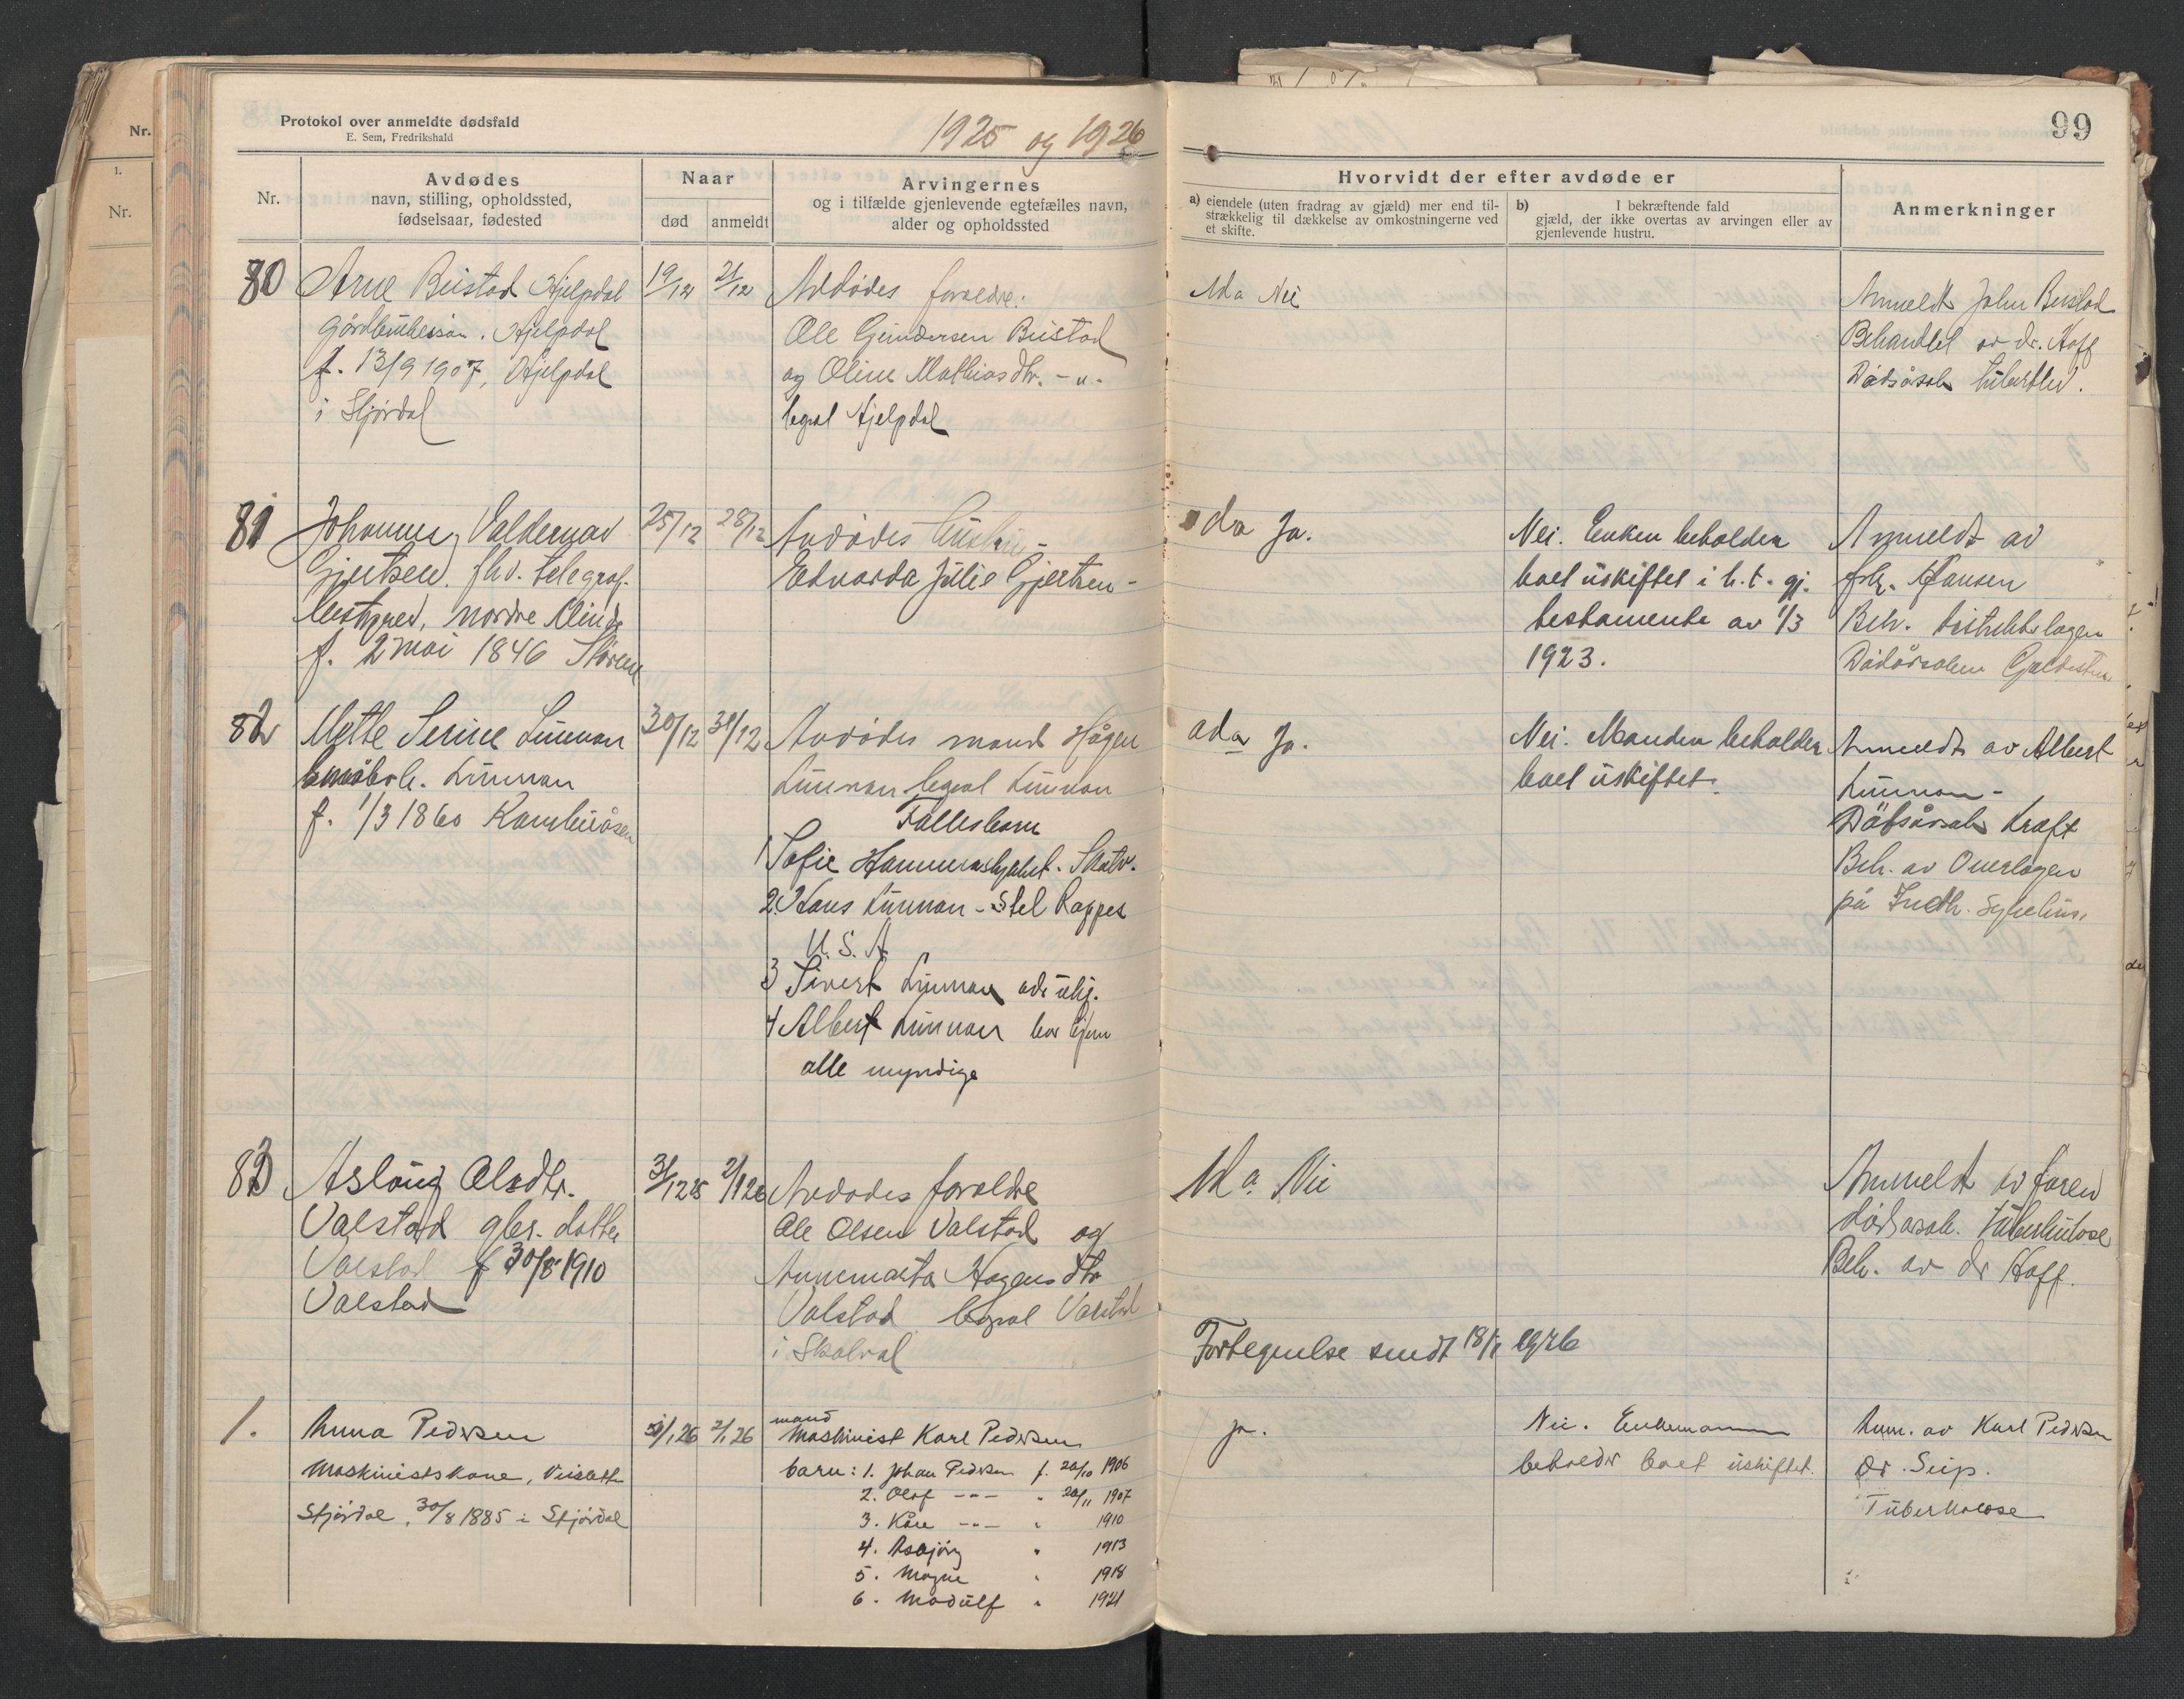 Nr.
1.
Nr.
Protokol over anmeldte dødsfald
E. Sem, Fredrikshald
1925 og 1926
99
Nr.
Avdødes
navn, stilling, opholdssted,
fødselsaar, fødested
Naar
død
anmeldt
Arvingernes
og i tilfælde gjenlevende egtefælles navn,
alder og opholdssted
Hvorvidt der efter avdøde er
a) eiendele (uten fradrag av gjæld) mer end til-
strækkelig til dækkelse av omkostningerne ved
et skifte.
b) I bekræftende fald
gjæld, der ikke overtas av arvingen eller av
gjenlevende hustru.
Anmerkninger
80
Arne Bustad Hjelpdal
Hjelpdal
f. 13/9 1907, Hjelpdal
i Stjørdal
19/12
21/12
Avdødes foreldre:
Ole Gundersen Bustad
og Oline Mathiasdtr. - u -
begge Hjelpdal
Nei
Anmeldt John Bustad
Behandlet av dr. Hoff
Dødsårsak tuberkul.
81
Johannes Valdemar
Gjertsen, fhv. telegraf-
bestyrer, nordre
f. 2 mai 1846
25/12
28/12
Avdødes hustru -
Edvarda Julie Gjertsen -
Ja.
Nei. Enken beholder
boet uskiftet i h. t. gj.
testamente av 1/3
1923.
Anmeldt av
frk. Hansen
Beh. distriktslægen
Dødsårsaken
82
Mette Serine Lunnan
Lunnan
f. 1/3 1860
30/12
31/12
Avdødes mand Hågen
Lunnan Lunnan
Fællesbarn
1 Sofie Hammershjahst. Skatv.
2. Hans Lunnan - Stel Rappes
U. S. A
3 Sivert Lunnan
4 Albert Lunnan bor hjem
alle myndige
Ja.
Nei. Manden beholder
boet uskiftet.
Anmeldt av Albert
Lunnan -
Dødsårsak Kræft
Beh. av Overlægen
på Indh. Sykehus.
83
Aslaug Olsdtr.
Valstad gbr. datter
Valstad f 30/8 1910
Valstad
31/12 25
2/1 26
Avdødes foreldre
Ole Olsen Valstad og
Annemarta Hagensdtr
Valstad Valstad
i Skatval
Nei
Anmeldt av faren
dødsårsak. Tuberkulose
Beh. av dr Hoff.
Fortegnelse sendt 18/1 1926
1.
Anna Pedersen
Maskinistskone,
Stjørdal, 30/8 1885 i Stjørdal
/1 26
2/1 26
mand
Maskinist Karl Pedersen
barn: 1. Johan Pedersen f. 20/10 1906
2. Olaf -"- " 20/11 1907
3. Kåre -"- " 1910
4. Asbjörg " 1913
5. Magne " 1918
6. Modulf " 1921
ja.
Nei. Enkemannen
beholder boet uskiftet.
Anm. av Karl Pedersen
Dr. Seip.
Tuberkulose